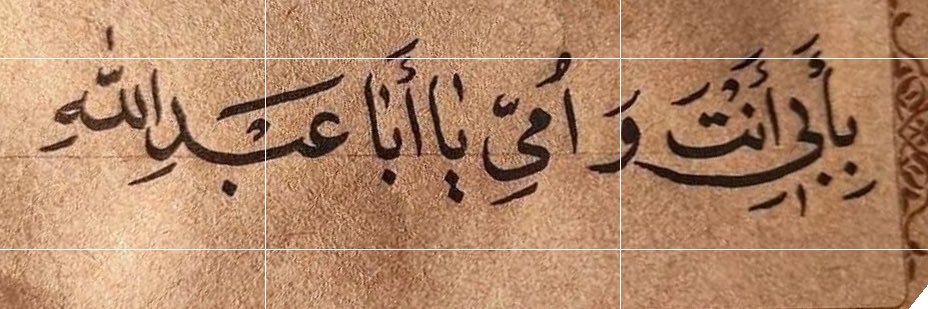 بِأَبِي أَنْتَ وَ اُمّيِ يٰا أَبٰا عَبْدِ اللّٰهِ